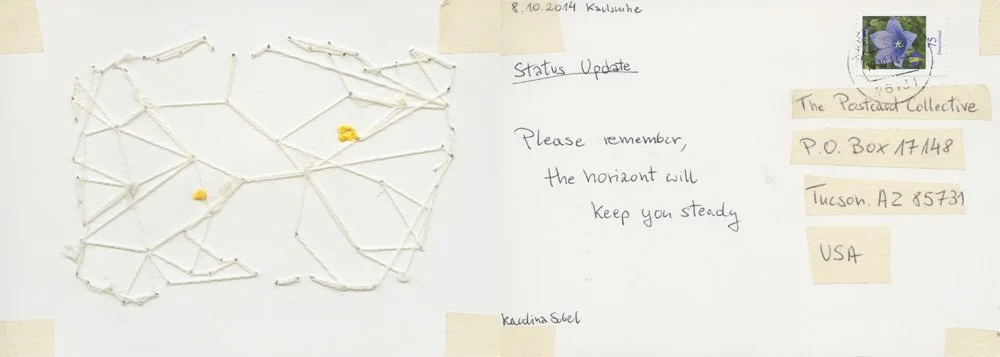 8.10.2014 Karlsruhe
Status Update
Please remember,
the horizont will
keep you steady
Karolina Sobel
75
Deutschland
76131
The Postcard Collective
P.O. Box 17148
Tucson. AZ 85731
USA